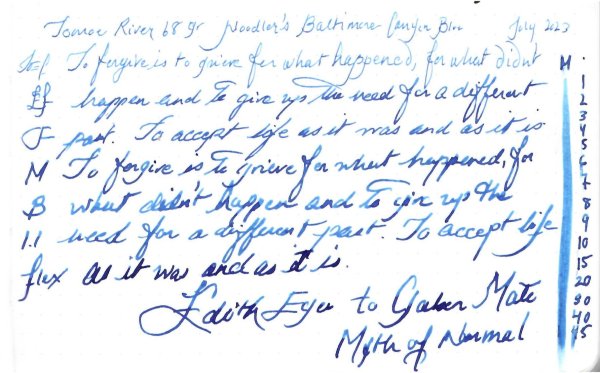 Tomoe River 68 gr Noodler's Baltimore Canyon Blue July 2023
To forgive is to grieve for what happened, for what didn't
Ef happen and to give up the need for a different
F past. To accept life as it was and as it is
M To forgive is to grieve for what happened, for
B what didn't happen and to give up the
1.1 need for a different past. To accept life
flex as it was and as it is.
Edith Eger to Gabor Maté
Myth of Normal
M
1
2
3
4
5
6
7
8
9
10
15
20
30
40
45